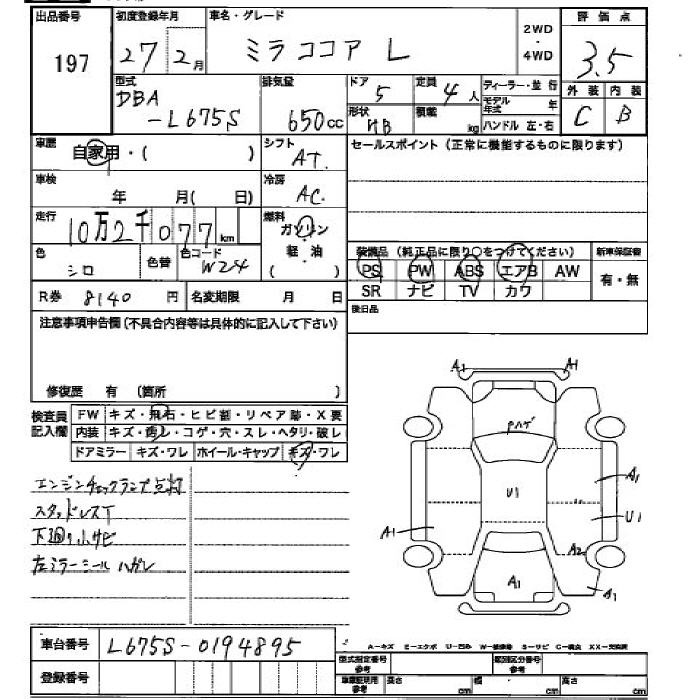 出品番号 初度登録年月 車名・グレード 2WD・4WD 評価点
197 27年 2月 ミラココア L 3.5
型式 排気量 ドア 定員 ディーラー・並行 外装 内装
DBA-L675S 650cc 5 4人 モデル年式 年 C B
形状 積載 kg ハンドル 左・右
HB
車歴 自家用・( ) シフト AT. セールスポイント(正常に機能するものに限ります)
車検 年 月( 日) 冷房 AC.
走行 10万2千077km 燃料 ガソリン・軽油 ( )
色 シロ 色替 色コード W24
装備品(純正品に限り○をつけてください) 新車保証書
PS PW ABS エアB AW 有・無
SR ナビ TV カワ
R券 8140円 名変期限 月 日 後日品
注意事項申告欄(不具合内容等は具体的に記入して下さい)
修復歴 有 (箇所 )
検査員記入欄 FW キズ・飛石・ヒビ割・リペア跡・X要
内装 キズ・汚レ・コゲ・穴・スレ・ヘタリ・破レ
ドアミラー キズ・ワレ ホイール・キャップ キズ・ワレ
エンジンチェックランプ点灯
スタッドレスT
下廻り小サビ
左ミラーシールハガレ
A1 A1
Pハゲ
A1
U1 U1
A1
A2
A1 A1
車台番号 L675S-0194895
登録番号
A-キズ E-エクボ U-凹み S-サビ
型式指定番号 参考 類別区分番号 参考
参考 長さ cm 幅 cm 高さ cm